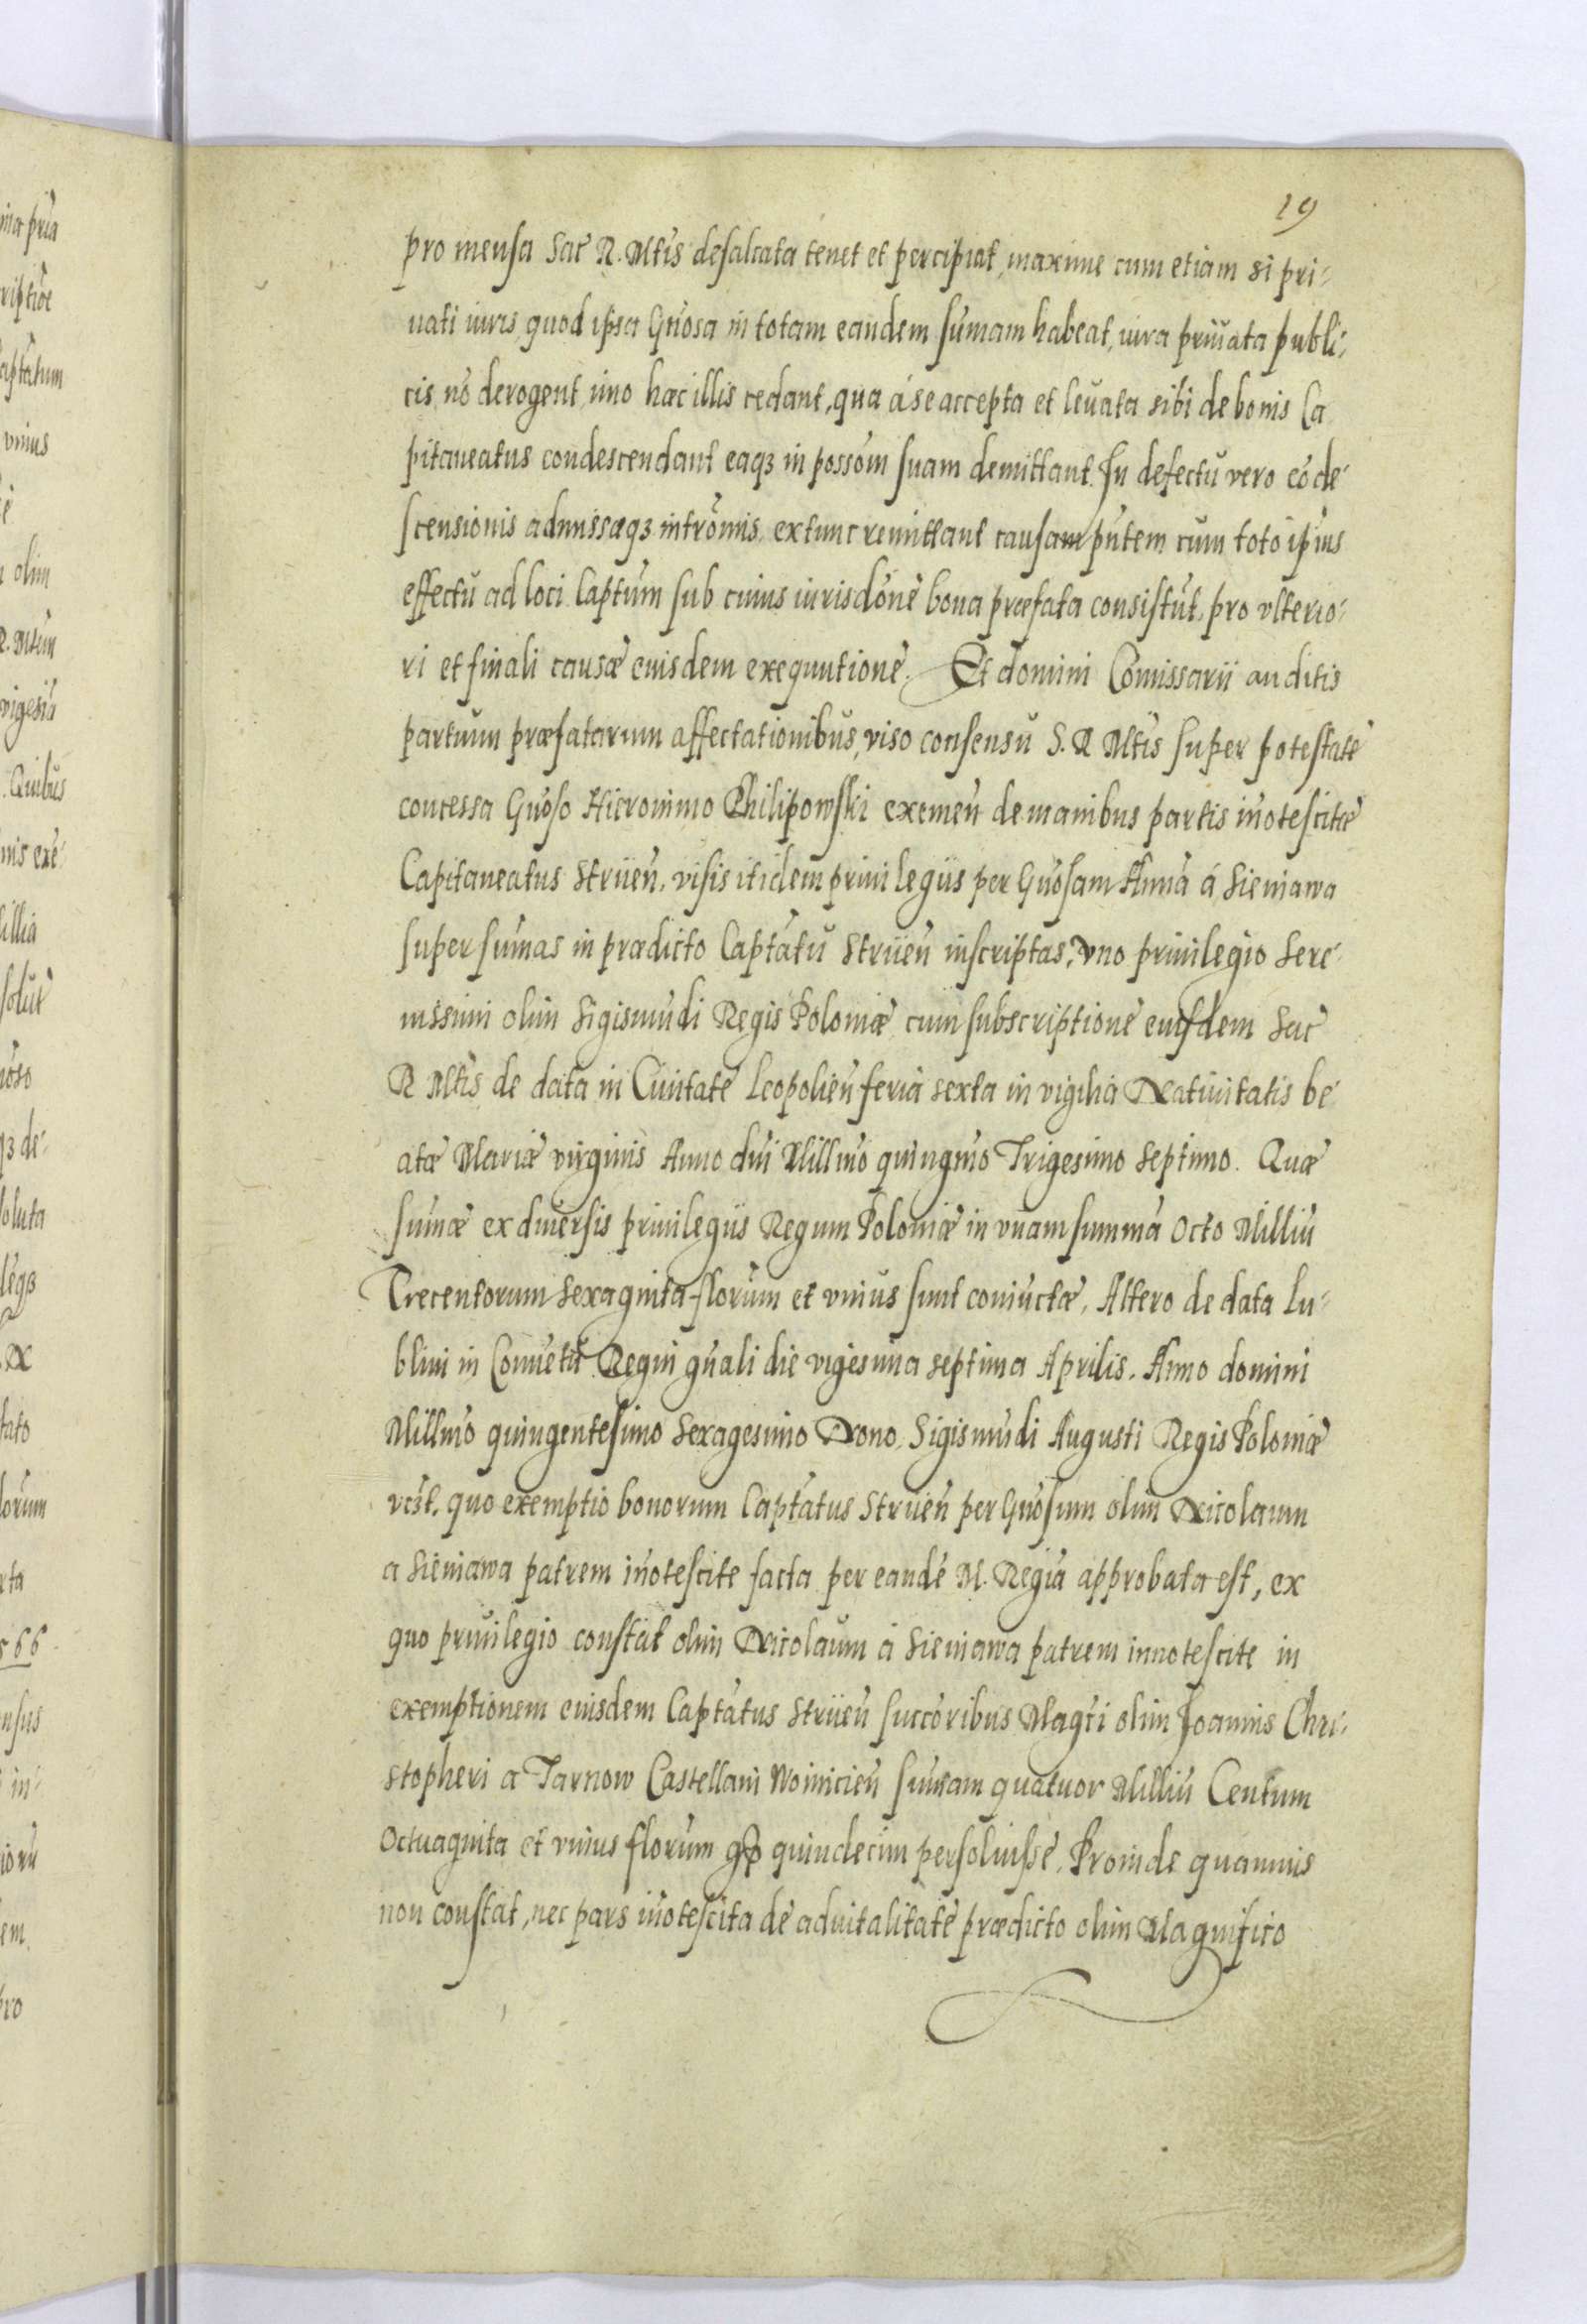 19
pro mensa Sac̄ R. Mtis defalcata tenet et percipiat, maxime cum etiam si pri-
uati iuris, quod ipsa Gn̄osa in totam eandem sum̄am habeat, iura priuata publi-
cis nō derogent, imo hæc illis cedant, qua á se accepta et leuata sibi de bonis Ca
pitaneatus condescendant eaqꝫ in posso̅m suam demittant. In defectu vero cōde-
scensionis admissæqꝫ intrōmis. extunc remittant causam pn̄tem cum toto ip̄ius
effectu ad loci Capt̄um sub cuius iurisdōne bona præfata consistūt, pro vlterio-
ri et finali causæ euisdem exequutione. Et domini Com̄issarii auditis
partium præfatarum affectationibus, viso consensu S. R Mtis super potestate
concessa Gn̄oso Hieronimo Philipowski exemen̄ de manibus partis in̄otescitæ
Capitaneatus Strÿen̄. visis itidem priuilegiis per Gn̄osam Annā á Sieniawa
super sum̄as in prædicto Capt̄atu Strÿen̄ inscriptas, vno priuilegio Sere-
nissimi olim Sigismūdi Regis Poloniæ cum subscriptione eiusdem Sac̄
R Mtis de data in Ciuitate Leopolien̄ feria sexta in vigilia Natiuitatis be-
atæ Mariæ virginis Anno dn̄i Millm̄o quingm̄o Trigesimo Septimo. Quæ
sum̄æ ex diuersis priuilegiis Regum Poloniæ in vnam summā Octo Milliū
Trecentorum Sexaginta florum et vnius sunt coniūctæ. Altero de data Lu-
blini in Conuētu Regni gn̄ali die vigesima septima Aprilis. Anno domini
Millm̄o quingentesimo Sexagesimo Nono, Sigismūdi Augusti Regis Poloniæ
vest. quo exemptio bonorum Capt̄atus Strÿen̄ per Gn̄osum olim Nicolaum
a Sieniawa patrem in̄otescite facta per eandē M. Regiā approbata est, ex
quo priuilegio constat olim Nicolaum á Sieniawa patrem innotescite in
exemptionem euisdem Capt̄atus Strÿen̄ succ̄oribus Magc̄i olim Joannis Chri-
stopheri a Tarnow Castellani Woinicien̄ sum̄am quatuor Milliū Centum
Octuaginta et vnius florum gr̄ quindecim persoluisse. Proinde quamuis
non constat, nec pars in̄otescita de aduitalitate prædicto olim Magnifico